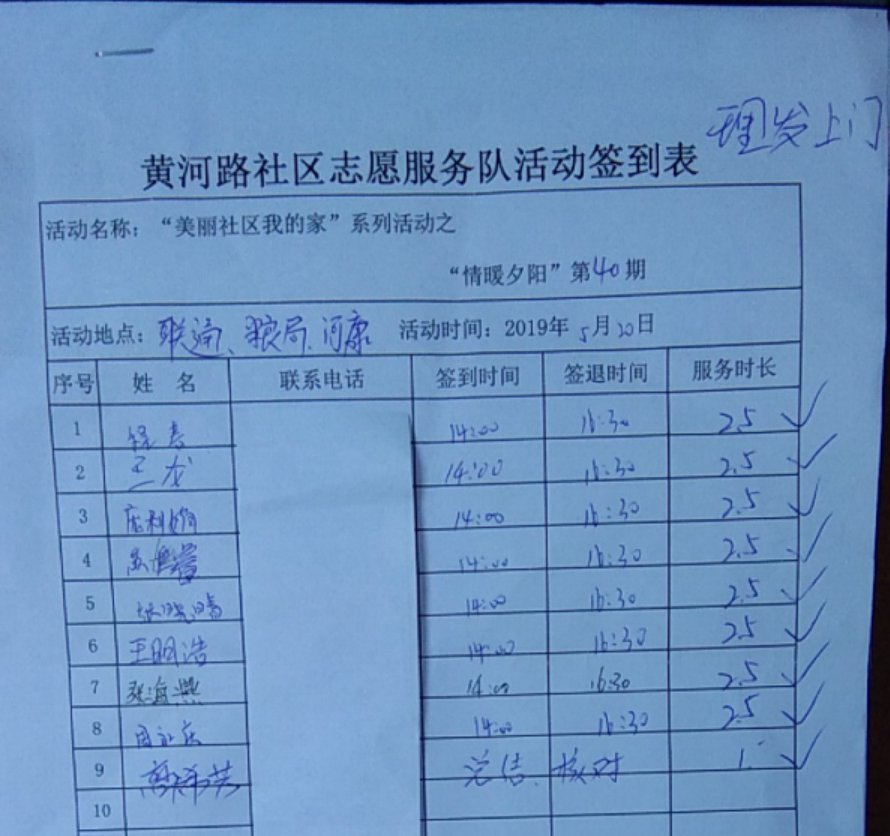 理发上门
黄河路社区志愿服务队活动签到表
活动名称：“美丽社区我的家”系列活动之
“情暖夕阳”第40期
活动地点：联通、粮局、河康 活动时间：2019年5月20日
序号 姓名 联系电话 签到时间 签退时间 服务时长
1 14:00 16:30 2.5
2 王龙 14:00 16:30 2.5
3 14:00 16:30 2.5
4 14:00 16:30 2.5
5 张晓鸣 14:00 16:30 2.5
6 王明浩 14:00 16:30 2.5
7 张海燕 14:00 16:30 2.5
8 14:00 16:30 2.5
9 总结、核对 1
10